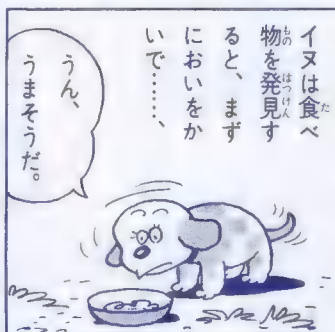 イヌは食べ
物を発見す
ると、まず
においをか
いで……、
うん、
うまそうだ。